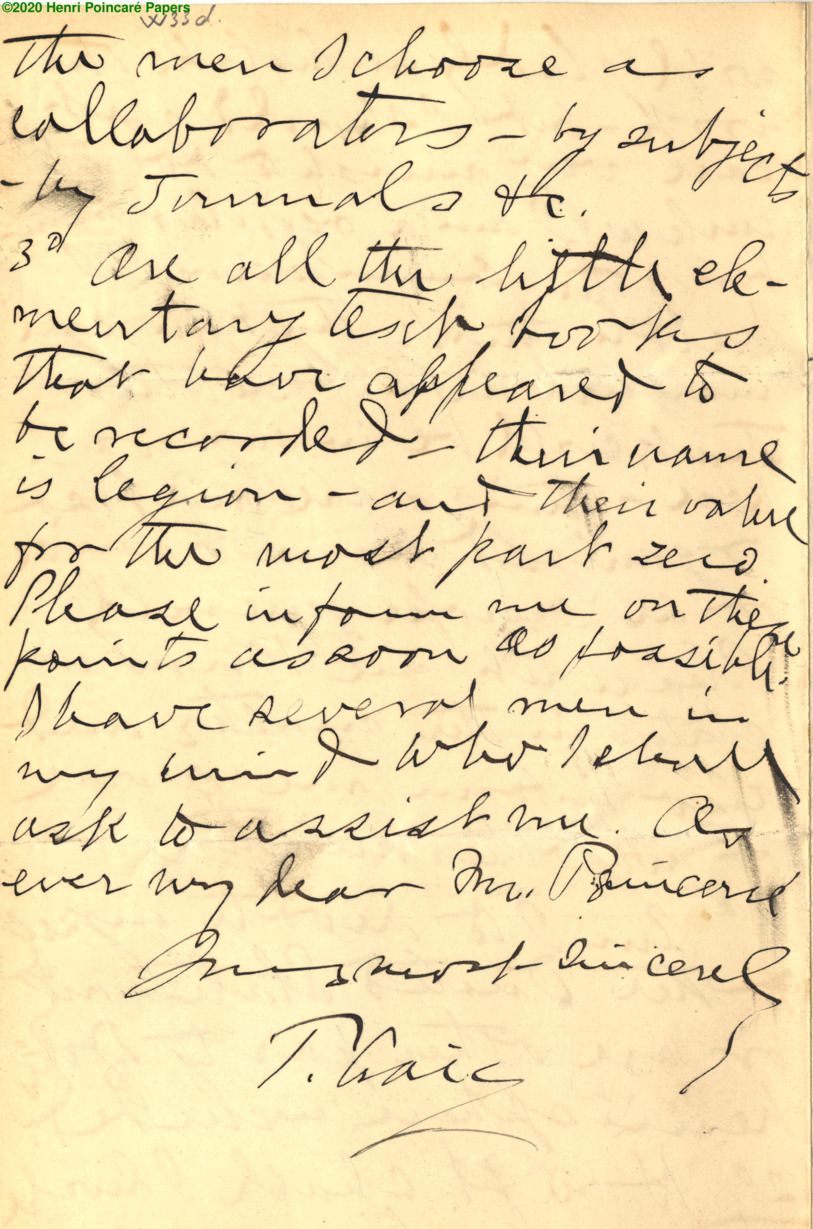 ©2020 Henri Poincaré Papers
W33d.
the men I choose as
collaborators – by subjects
– by Journals &c.
3° Are all the little ele-
mentary text books
that have appeared to
be recorded – their name
is legion – and their value
for the most part zero.
Please inform me on these
points as soon as possible.
I have several men in
my mind who I shall
ask to assist me. As
ever my dear Mr. Poincaré
Yours most sincerely
T. Craig